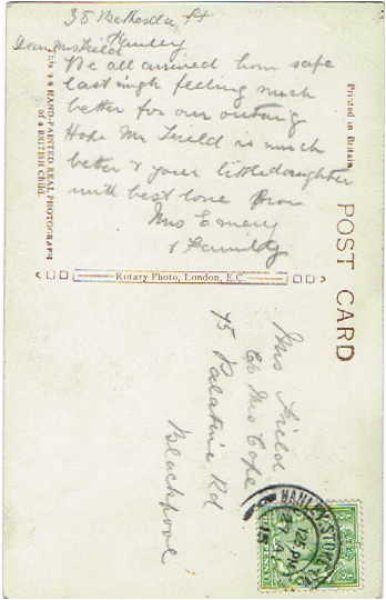 35 Bethesda St
Hanley
Dear Mrs Field
We all arrived hom safe
last nigh feeling much
better for our outing
Hope Mr Field is much
better & your little daughter
with best love from
Mrs Emery
& Family
THIS IS A HAND-PAINTED REAL PHOTOGRAPH
of a BRITISH CHILD.
Rotary Photo, London, E.C.
Printed in Britain
POST CARD
Mrs Field
c/o Mrs Cope
45 Palatine Rd
Blackpool
HANLEY STOKE
12 PM
15